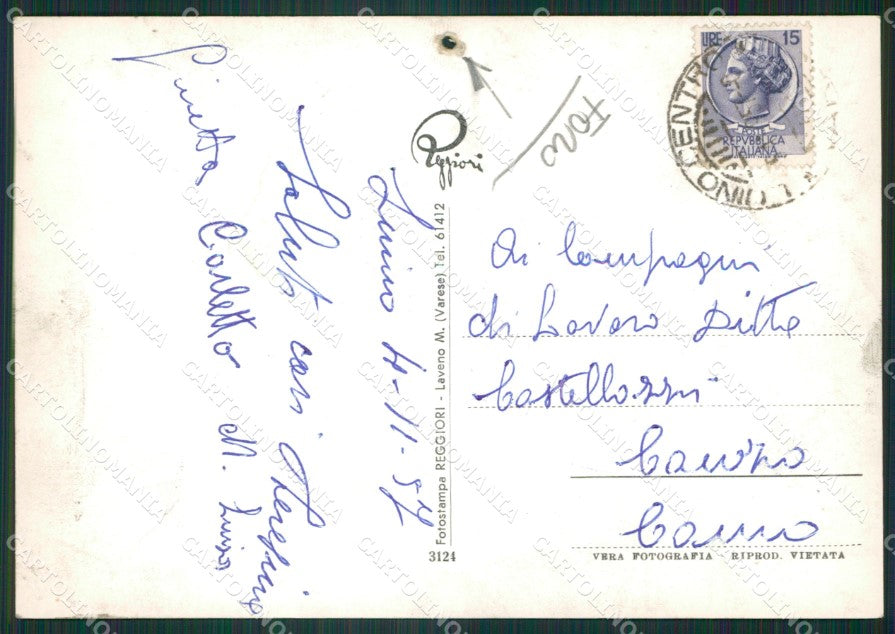 Luino 4-11-57
Saluti cari Teresina
Ginetta Carletto M. Luisa
Foro
Reggiori
Fotostampa REGGIORI - Laveno M. (Varese) Tel. 61412
3124
LIRE 15
POSTE
REPVBBLICA
ITALIANA
CENTRO
LUINO
Ai Compagni
di Lavoro Ditta
Castellozzi
VERA FOTOGRAFIA - RIPROD. VIETATA
CARTOLINOMANIA